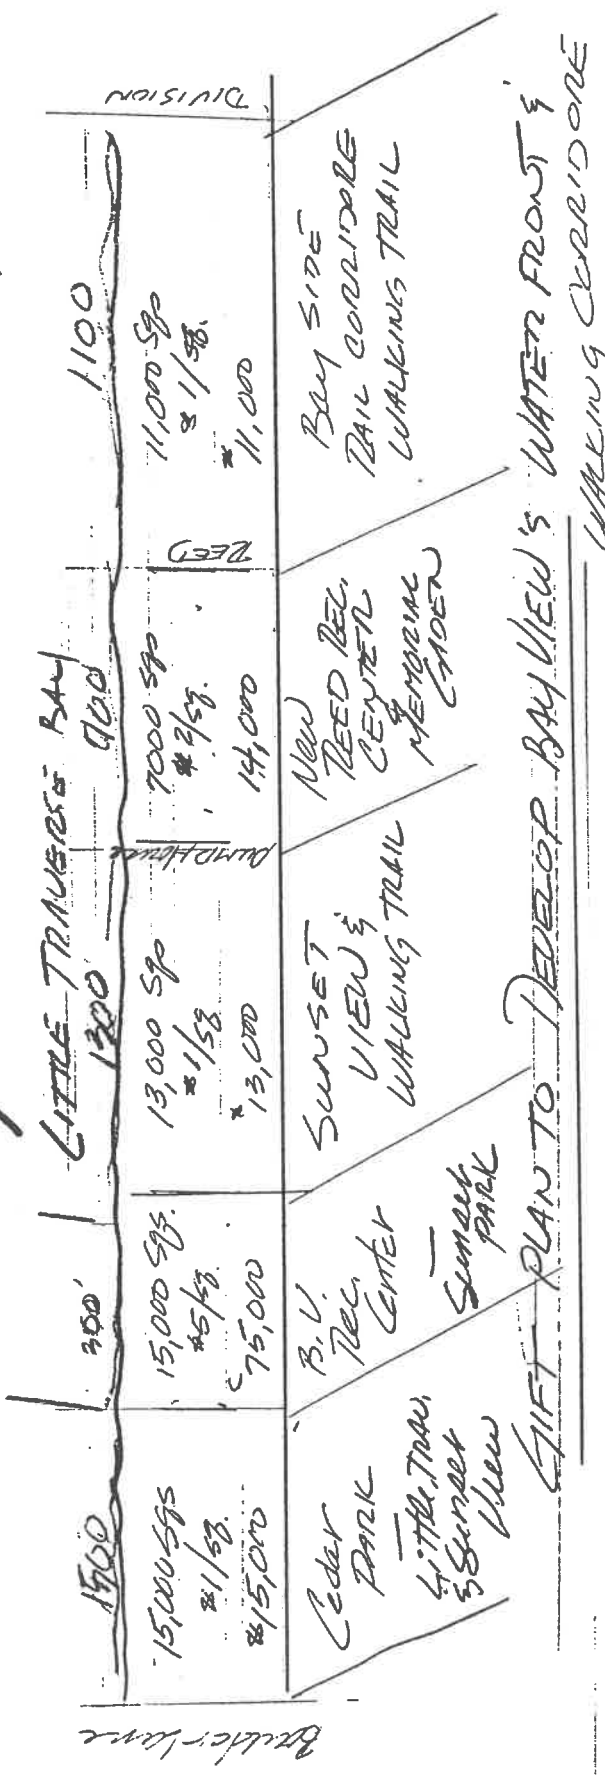 LITTLE TRAVERSE BAY
1500
300'
1300
700
1100
Boulder Lane
15,000 Sqs
$1/sq.
$15,000
15,000 Sqs.
$5/sq.
75,000
13,000 Sqs
$1/sq
$13,000
PUMP House
7000 Sqs
$2/sq.
14,000
REED
11,000 Sqs
$1/sq.
$11,000
DIVISION
Cedar
PARK
Little TRAV.
& Sunset
View
B.V.
Rec.
Center
Sunset
PARK
SUNSET
VIEW &
WALKING TRAIL
New
REED REC.
CENTER
&
MEMORIAL
GADEN
BAY SIDE
RAIL CORRIDORE
WALKING TRAIL
GIFT PLAN TO DEVELOP BAY VIEW'S WATER FRONT &
WALKING CORRIDORE